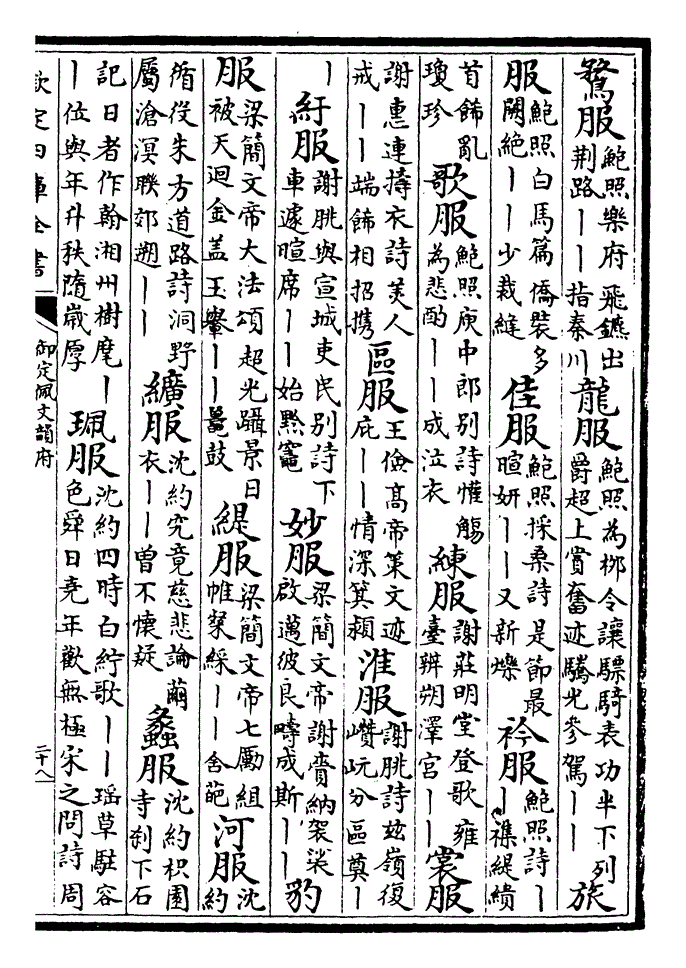 鶩服鮑照樂府飛鑣出荆路丨丨指秦川龍服鮑照為栁令讓驃騎表功半下列爵超上賞奮迹驤光參駕丨丨旅
服鮑照白馬篇僑裝多闕絶丨丨少裁縫佳服鮑照採桑詩是節最暄妍丨丨又新爍衿服鮑照詩丨丨襍緹繢
首飾亂瓊珍歌服鮑照庾中郎别詩懽觴為悲酌丨丨成泣衣練服謝莊明堂登歌雍臺辨朔澤宮丨丨裳服
謝惠連擣衣詩美人戒丨丨端飾相招携區服王儉髙帝策文迹庇丨丨情深箕潁淮服謝朓詩兹嶺復巑岏分區奠丨
丨紆服謝朓與宣城吏民别詩下車遽暄席丨丨始黔竈妙服梁簡文帝謝賚納袈裟啟邁彼良疇成斯丨丨豹
服梁簡文帝大法頌超光躡景日被天迴金盖玉轝丨丨鼉鼓緹服梁簡文帝七勵組帷縏綵丨丨舍葩河服沈約
循役朱方道路詩洞野屬滄溟聮郊遡丨丨纊服沈約究竟慈悲論繭衣丨丨曽不懐疑蠡服沈約枳園寺刹下石
記日者作翰湘州樹麾丨丨位與年升秩隨嵗厚珮服沈約四時白紵歌丨丨瑶草駐容色舜日堯年歡無極宋之問詩周
欽定四庫全書
御定佩文韻府
二十八